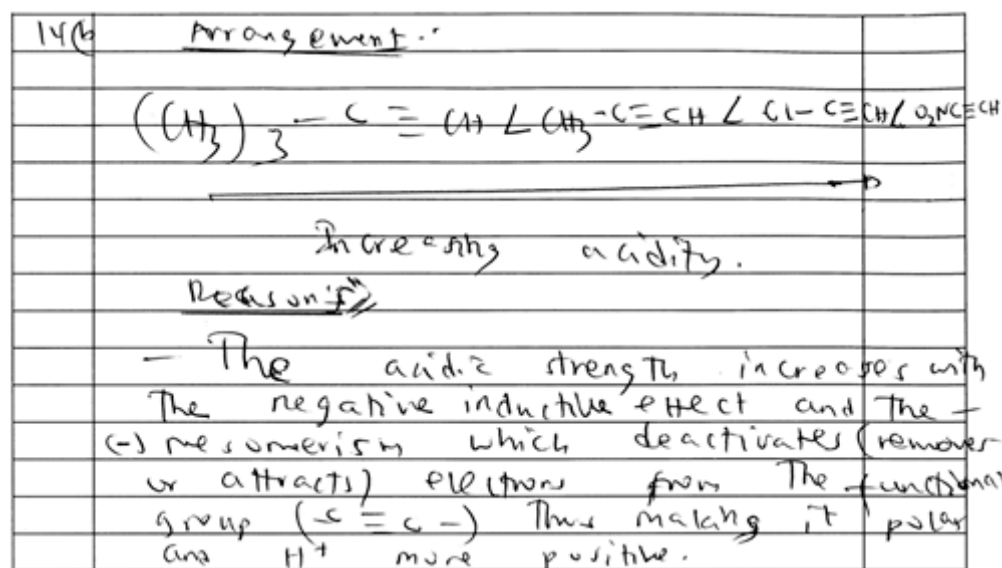 14(b Arrangement:
(CH3)3 - C ≡ CH < CH3-C≡CH < Cl-C≡CH < O2NC≡CH
Increasing acidity.
Reasons"
- The acidic strength increases with
the negative inductive effect and the -
(-) mesomerism which deactivates (removes
or attracts) electrons from the functional
group (-C ≡ C-) Thus making it polar
and H+ more positive.